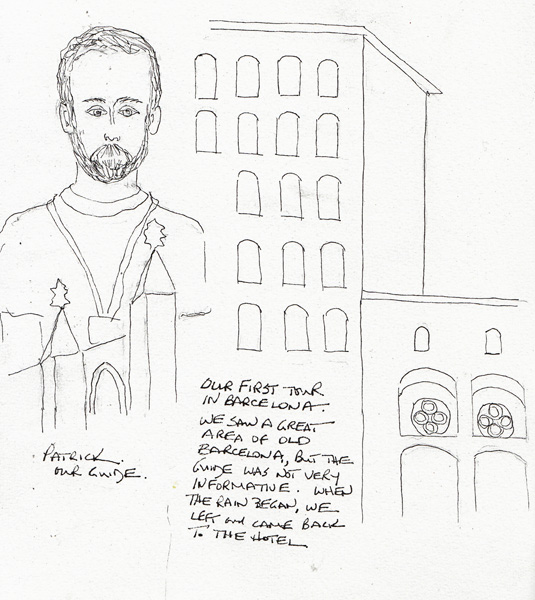 PATRICK.
OUR GUIDE.
OUR FIRST TOUR
IN BARCELONA.
WE SAW A GREAT
AREA OF OLD
BARCELONA, BUT THE
GUIDE WAS NOT VERY
INFORMATIVE. WHEN
THE RAIN BEGAN, WE
LEFT and CAME BACK
TO THE HOTEL